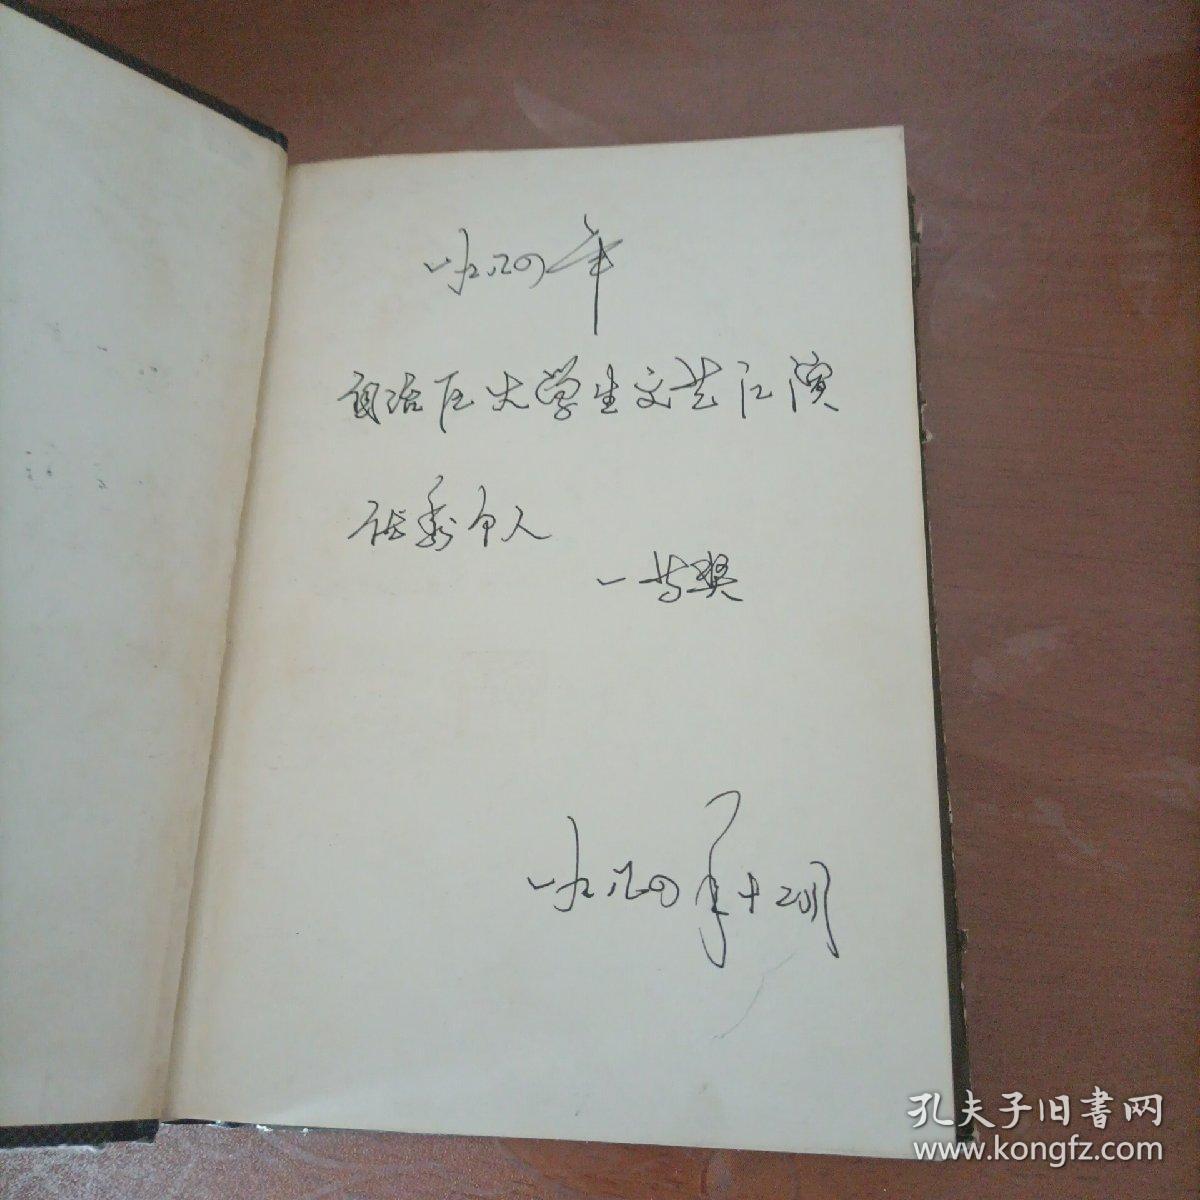 一九八四年
自治区大学生文艺汇演
优秀个人
一等奖
一九八四年十二月
孔夫子旧書网
www.kongfz.com